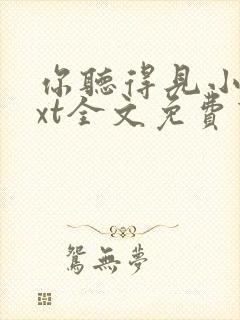 你聽得見小
xt全文免費
鴛無夢